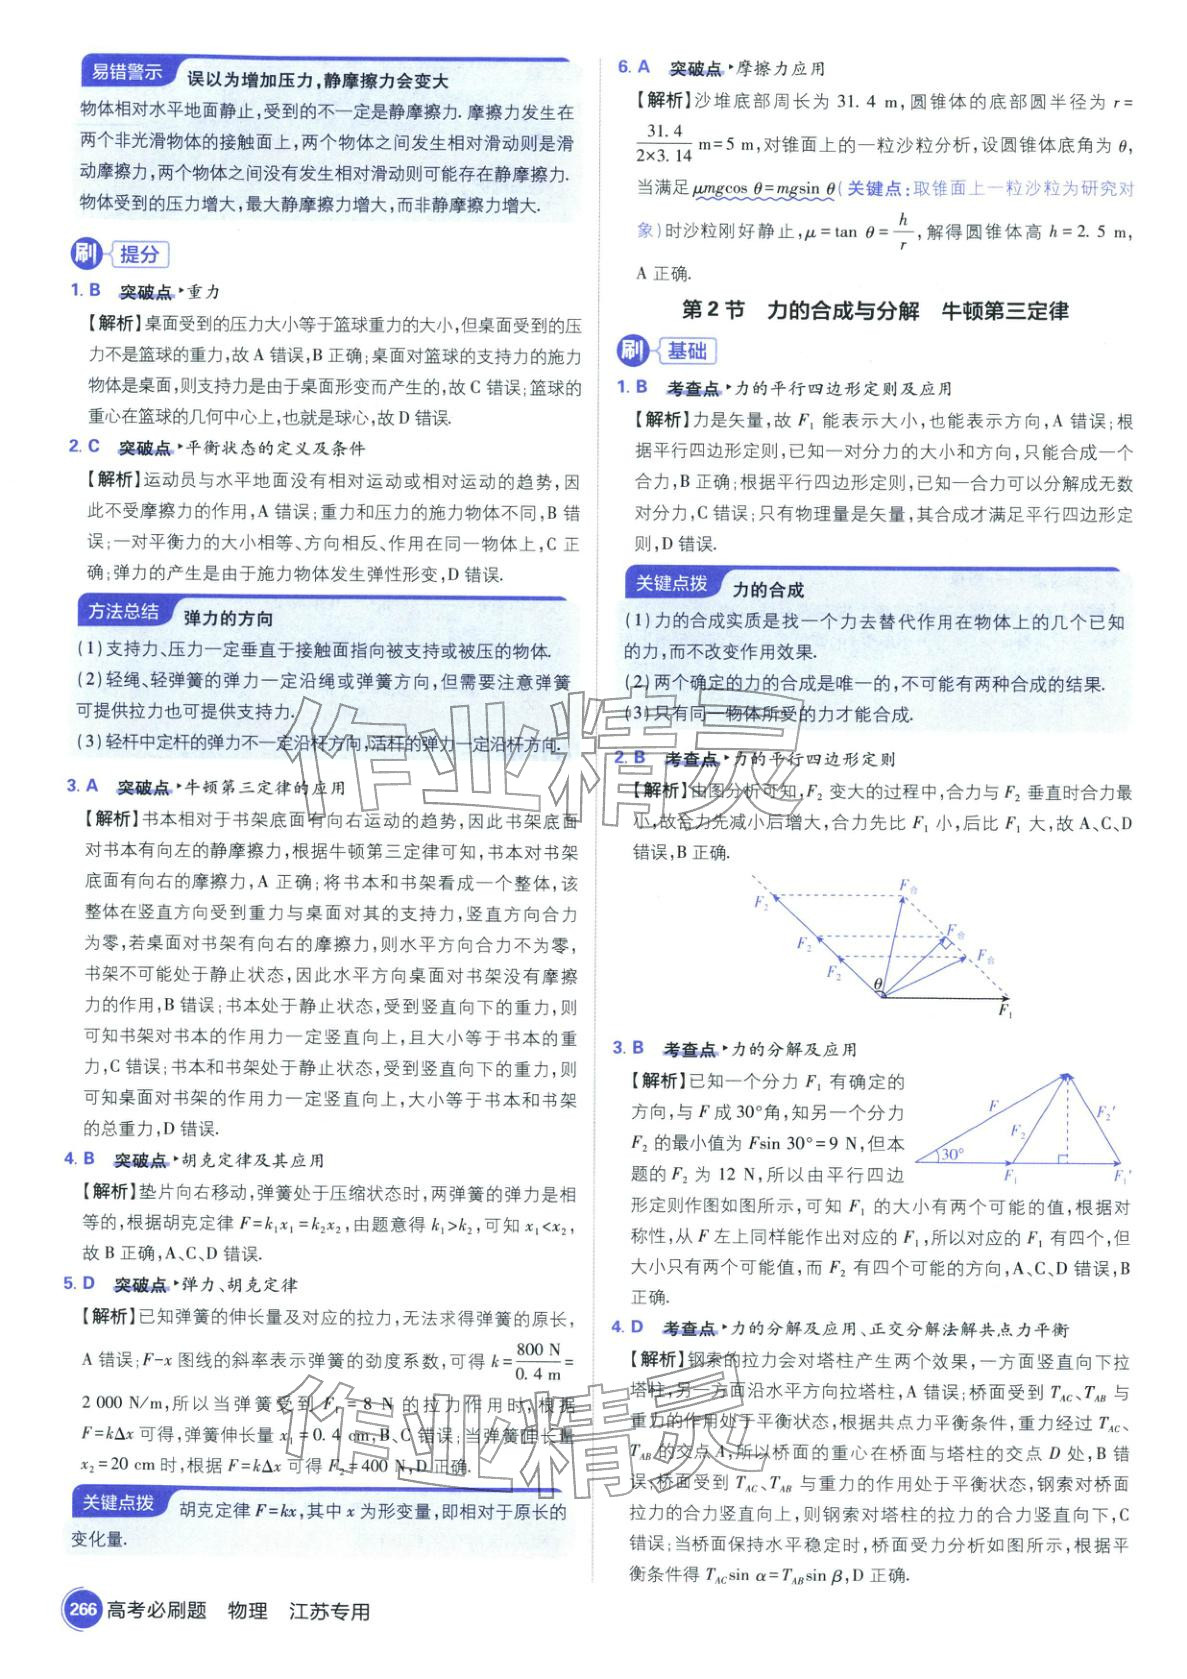 易错警示 误以为增加压力,静摩擦力会变大
物体相对水平地面静止,受到的不一定是静摩擦力. 摩擦力发生在
两个非光滑物体的接触面上,两个物体之间发生相对滑动则是滑
动摩擦力,两个物体之间没有发生相对滑动则可能存在静摩擦力.
物体受到的压力增大,最大静摩擦力增大,而非静摩擦力增大.
刷 提分
1. B 突破点 重力
【解析】桌面受到的压力大小等于篮球重力的大小,但桌面受到的压
力不是篮球的重力,故 A 错误,B 正确;桌面对篮球的支持力的施力
物体是桌面,则支持力是由于桌面形变而产生的,故 C 错误;篮球的
重心在篮球的几何中心上,也就是球心,故 D 错误.
2. C 突破点 平衡状态的定义及条件
【解析】运动员与水平地面没有相对运动或相对运动的趋势,因
此不受摩擦力的作用,A 错误;重力和压力的施力物体不同,B 错
误;一对平衡力的大小相等、方向相反、作用在同一物体上,C 正
确;弹力的产生是由于施力物体发生弹性形变,D 错误.
方法总结 弹力的方向
(1)支持力、压力一定垂直于接触面指向被支持或被压的物体.
(2)轻绳、轻弹簧的弹力一定沿绳或弹簧方向,但需要注意弹簧
可提供拉力也可提供支持力.
(3)轻杆中定杆的弹力不一定沿杆方向,活杆的弹力一定沿杆方向.
3. A 突破点 牛顿第三定律的应用
【解析】书本相对于书架底面有向右运动的趋势,因此书架底面
对书本有向左的静摩擦力,根据牛顿第三定律可知,书本对书架
底面有向右的摩擦力,A 正确;将书本和书架看成一个整体,该
整体在竖直方向受到重力与桌面对其的支持力,竖直方向合力
为零,若桌面对书架有向右的摩擦力,则水平方向合力不为零,
书架不可能处于静止状态,因此水平方向桌面对书架没有摩擦
力的作用,B 错误;书本处于静止状态,受到竖直向下的重力,则
可知书架对书本的作用力一定竖直向上,且大小等于书本的重
力,C 错误;书本和书架处于静止状态,受到竖直向下的重力,则
可知桌面对书架的作用力一定竖直向上,大小等于书本和书架
的总重力,D 错误.
4. B 突破点 胡克定律及其应用
【解析】垫片向右移动,弹簧处于压缩状态时,两弹簧的弹力是相
等的,根据胡克定律 F=k₁x₁=k₂x₂,由题意得 k₁>k₂,可知 x₁<x₂,
故 B 正确,A、C、D 错误.
5. D 突破点 弹力、胡克定律
【解析】已知弹簧的伸长量及对应的拉力,无法求得弹簧的原长,
A 错误;F-x 图线的斜率表示弹簧的劲度系数,可得 k=800 N/0.4 m=
2 000 N/m,所以当弹簧受到 F₁=8 N 的拉力作用时,根据
F=kΔx 可得,弹簧伸长量 x₁=0.4 cm,B、C 错误;当弹簧伸长量
x₂=20 cm 时,根据 F=kΔx 可得 F₂=400 N,D 正确.
关键点拨 胡克定律 F=kx,其中 x 为形变量,即相对于原长的
变化量.
266 高考必刷题 物理 江苏专用
6. A 突破点 摩擦力应用
【解析】沙堆底部周长为 31.4 m,圆锥体的底部圆半径为 r=
31.4/2×3.14 m=5 m,对锥面上的一粒沙粒分析,设圆锥体底角为 θ,
当满足 μmgcos θ=mgsin θ(关键点:取锥面上一粒沙粒为研究对
象)时沙粒刚好静止,μ=tan θ=h/r,解得圆锥体高 h=2.5 m,
A 正确.
第 2 节 力的合成与分解 牛顿第三定律
刷 基础
1. B 考查点 力的平行四边形定则及应用
【解析】力是矢量,故 F₁ 能表示大小,也能表示方向,A 错误;根
据平行四边形定则,已知一对分力的大小和方向,只能合成一个
合力,B 正确;根据平行四边形定则,已知一合力可以分解成无数
对分力,C 错误;只有物理量是矢量,其合成才满足平行四边形定
则,D 错误.
关键点拨 力的合成
(1)力的合成实质是找一个力去替代作用在物体上的几个已知
的力,而不改变作用效果.
(2)两个确定的力的合成是唯一的,不可能有两种合成的结果.
(3)只有同一物体所受的力才能合成.
2. B 考查点 力的平行四边形定则
【解析】由图分析可知,F₂ 变大的过程中,合力与 F₂ 垂直时合力最
小,故合力先减小后增大,合力先比 F₁ 小,后比 F₁ 大,故 A、C、D
错误,B 正确.
F₂ F合
F₂ F合
F₂ F合
θ
F₁
3. B 考查点 力的分解及应用
【解析】已知一个分力 F₁ 有确定的
方向,与 F 成 30°角,知另一个分力
F₂ 的最小值为 Fsin 30°=9 N,但本
题的 F₂ 为 12 N,所以由平行四边
形定则作图如图所示,可知 F₁ 的大小有两个可能的值,根据对
称性,从 F 左上同样能作出对应的 F₁,所以对应的 F₁ 有四个,但
大小只有两个可能值,而 F₂ 有四个可能的方向,A、C、D 错误,B
正确.
F F₂ F₂′
30° F₁ F₁′
4. D 考查点 力的分解及应用、正交分解法解共点力平衡
【解析】钢索的拉力会对塔柱产生两个效果,一方面竖直向下拉
塔柱,另一方面沿水平方向拉塔柱,A 错误;桥面受到 T_AC、T_AB 与
重力的作用处于平衡状态,根据共点力平衡条件,重力经过 T_AC、
T_AB 的交点 A,所以桥面的重心在桥面与塔柱的交点 D 处,B 错
误;桥面受到 T_AC、T_AB 与重力的作用处于平衡状态,钢索对桥面
拉力的合力竖直向上,则钢索对塔柱的拉力的合力竖直向下,C
错误;当桥面保持水平稳定时,桥面受力分析如图所示,根据平
衡条件得 T_AC sin α=T_AB sin β,D 正确.
作业精灵
作业精灵